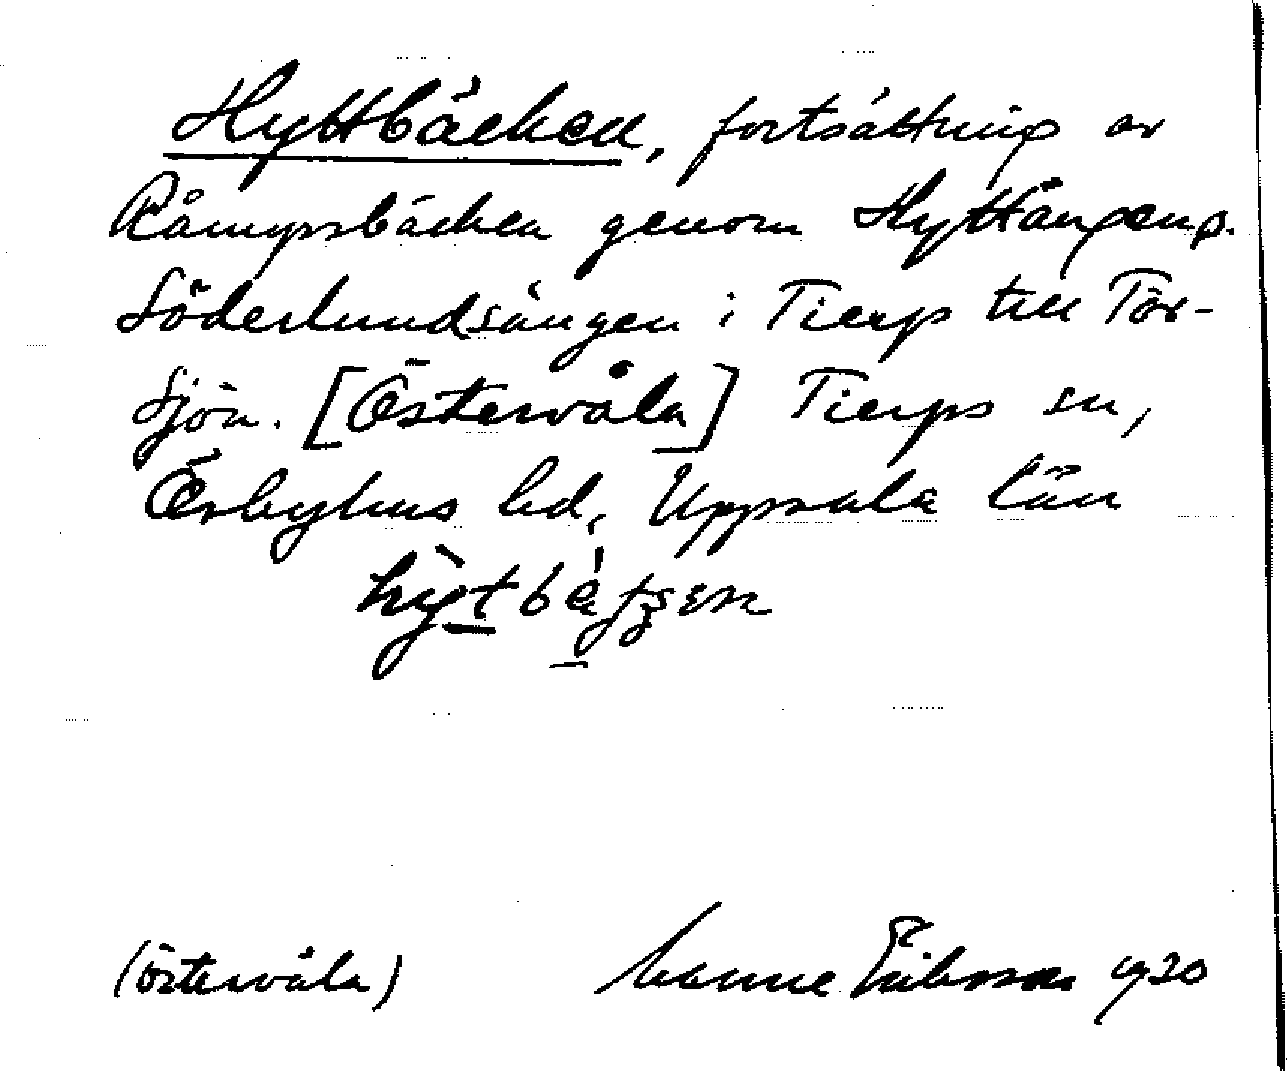 Hyttbäcken, fortsättning av
Råmyrsbäcken genom Hyttängen o.
Söderlundsängen i Tierp till Tor-
sjön. [Östervåla] Tierps sn,
Örbyhus hd, Uppsala län
(Östervåla) Manne Eriksson 1930